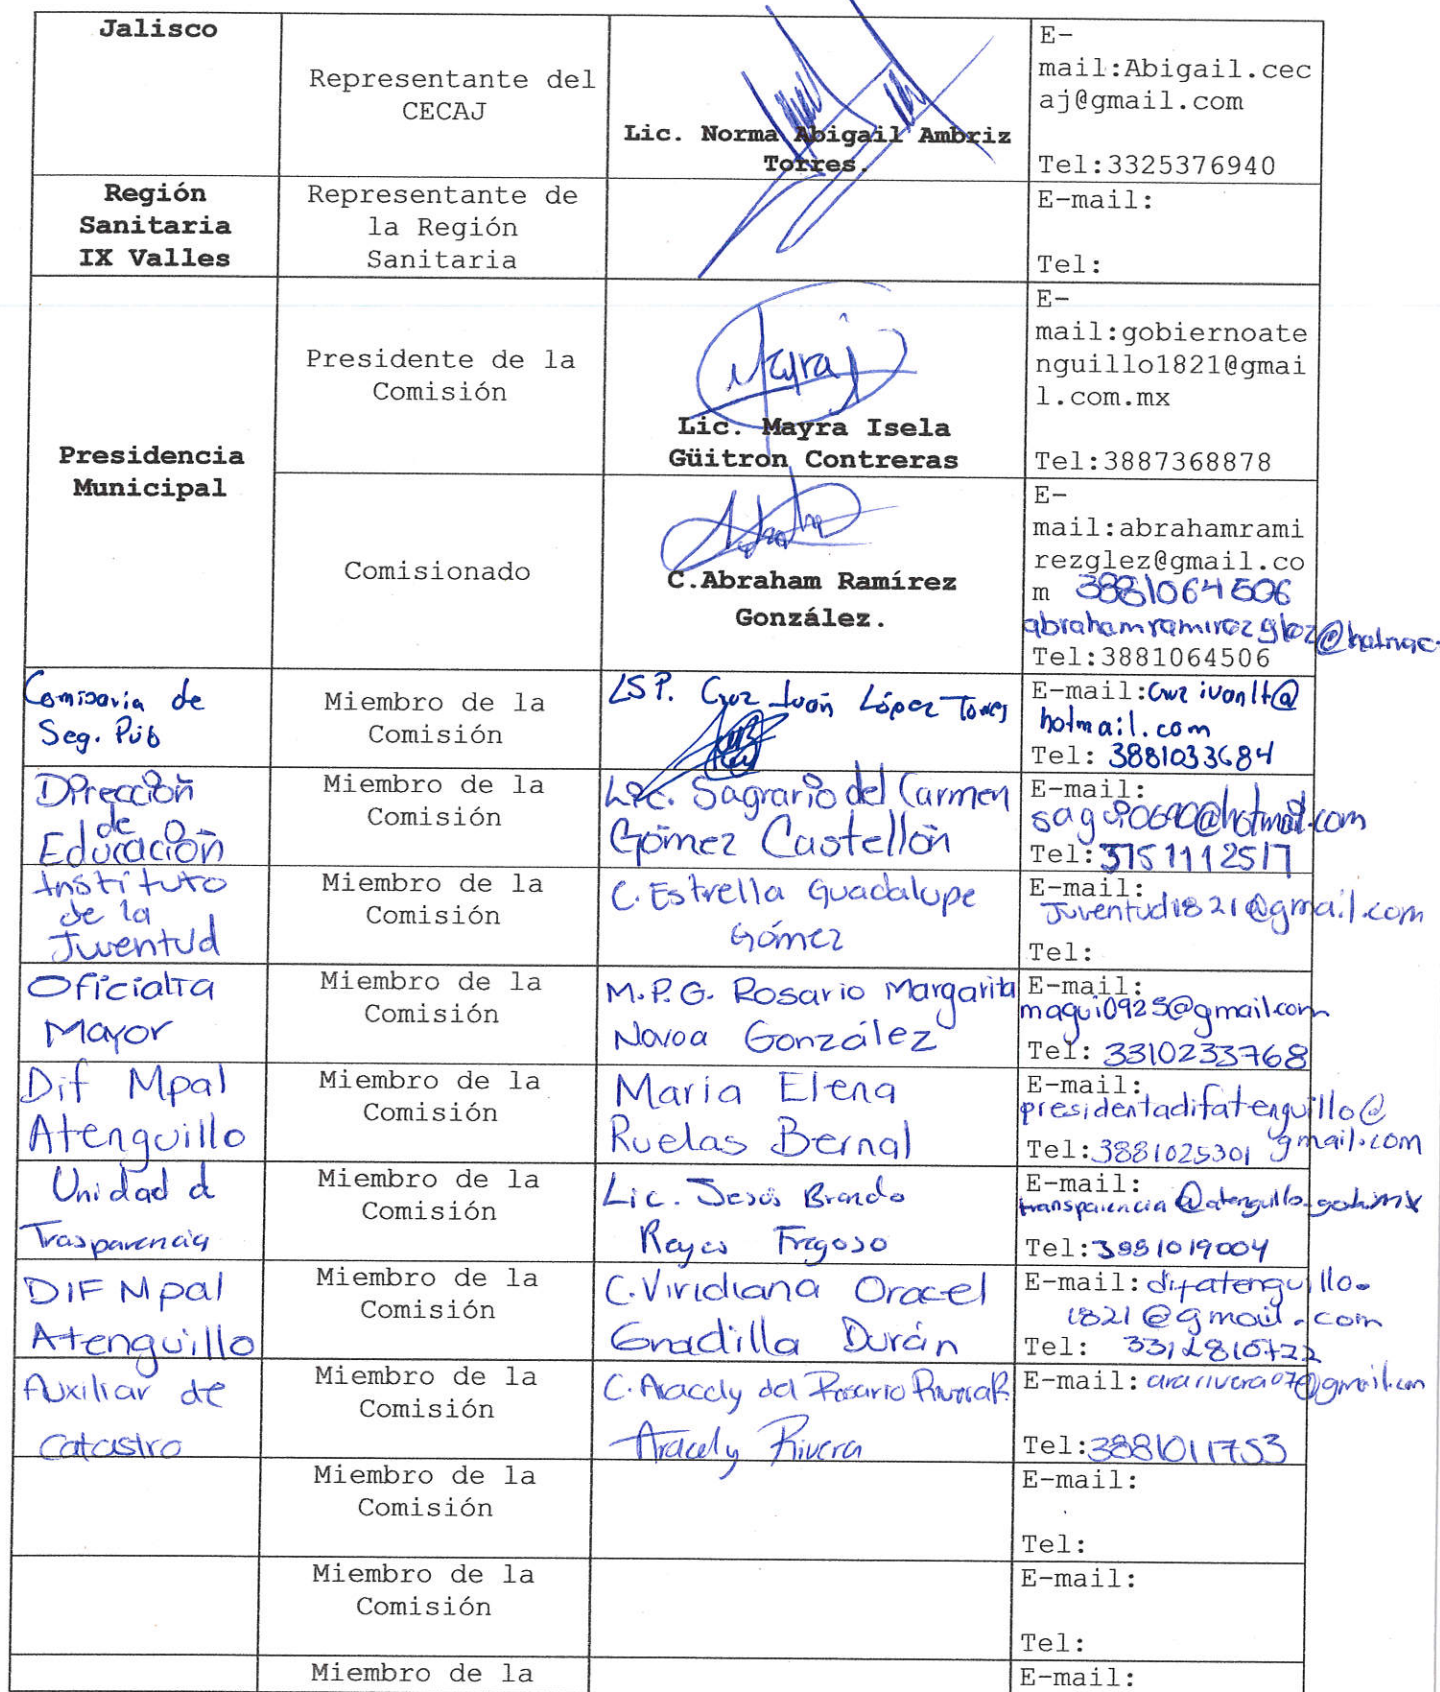 Jalisco
Representante del
CECAJ
Lic. Norma Abigail Ambriz
Torres.
E-
mail:Abigail.cec
aj@gmail.com
Tel:3325376940
Región
Sanitaria
IX Valles
Representante de
la Región
Sanitaria
E-mail:
Tel:
Presidencia
Municipal
Presidente de la
Comisión
Mayra
Lic. Mayra Isela
Güitron Contreras
E-
mail:gobiernoate
nguillo1821@gmai
l.com.mx
Tel:3887368878
Comisionado
C.Abraham Ramírez
González.
E-
mail:abrahamrami
rezglez@gmail.co
m 3881064506
Tel:3881064506
Comisaria de
Seg. Púb
Miembro de la
Comisión
LSP. Cruz Iván López Torres
E-mail: Cruzivanlt@
hotmail.com
Tel: 3881033684
Dirección
de
Educación
Miembro de la
Comisión
Lic. Sagrario del Carmen
Gómez Castellón
E-mail:
Tel: 3751112517
Instituto
de la
Juventud
Miembro de la
Comisión
C. Estrella Guadalupe
Gómez
E-mail:
Juventud1821@gmail.com
Tel:
Oficialía
Mayor
Miembro de la
Comisión
M.P.G. Rosario Margarita
Novoa González
E-mail:
magui0925@gmail.com
Tel: 3310233768
Dif Mpal
Atenguillo
Miembro de la
Comisión
Maria Elena
Ruelas Bernal
E-mail:
presidentadifatenguillo@
gmail.com
Tel:3881025301
Unidad d
Trasparencia
Miembro de la
Comisión
Lic. Jesús Brando
Reyes Fregoso
E-mail:
transparencia@atenguillo.gob.mx
Tel:3881019004
DIF Mpal
Atenguillo
Miembro de la
Comisión
C. Viridiana Oracel
Gradilla Durán
E-mail: difatenguillo.
1821@gmail.com
Tel: 3312810722
Auxiliar de
Catastro
Miembro de la
Comisión
C. Aracely del Rosario Rivera R.
Aracely Rivera
E-mail: ararivera07@gmail.com
Tel:3881011753
Miembro de la
Comisión
E-mail:
Tel:
Miembro de la
Comisión
E-mail:
Tel:
Miembro de la
E-mail: